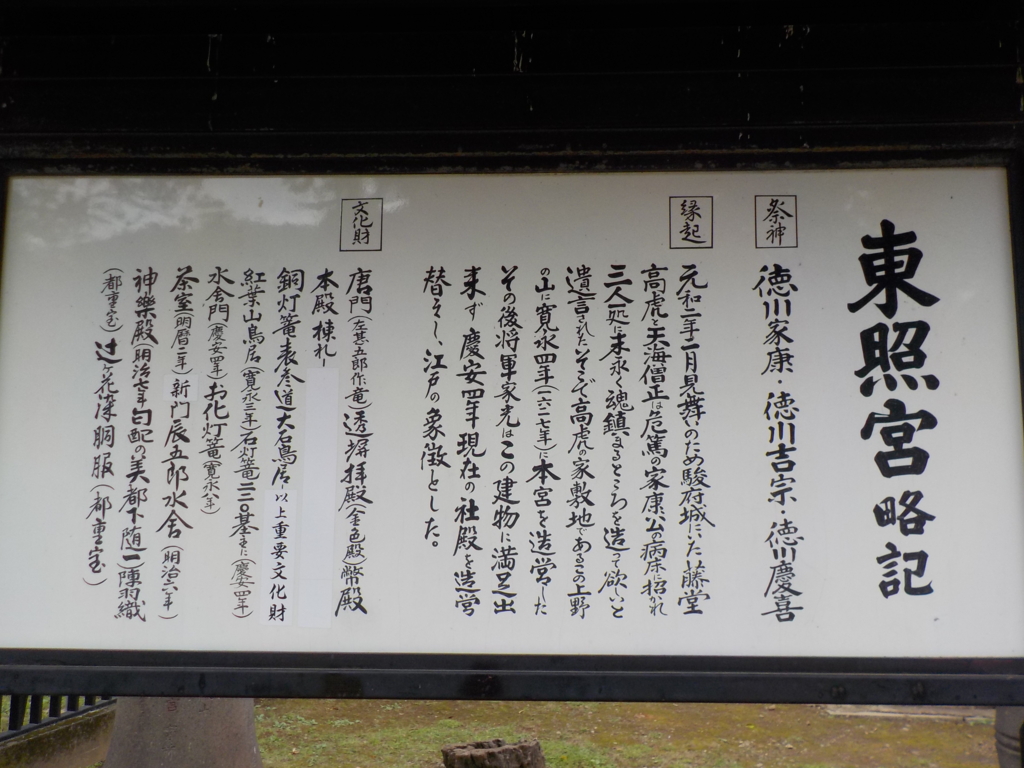 東照宮略記
祭神
徳川家康・徳川吉宗・徳川慶喜
縁起
元和二年二月見舞いのため駿府城にいた藤堂
高虎と天海僧正は危篤の家康公の病床に招かれ
三人一処に末永く魂鎮まるところを造って欲しいと
遺言されたそこで高虎の家敷地であるこの上野
の山に寛永四年(一六二七年)に本宮を造営した
その後将軍家光はこの建物に満足出
来ず慶安四年現在の社殿を造営
替えし、江戸の象徴とした。
文化財
唐門(左甚五郎作竜)透塀拝殿(金色殿)幣殿
本殿棟札
銅灯篭表参道大石鳥居 以上重要文化財
紅葉山鳥居(寛永三年)石灯篭二三〇基(慶安四年)
水舎門(慶安四年)お化灯篭(寛永八年)
茶室(明暦二年)新門辰五郎水舎(明治六年)
神楽殿(明治七年)勾配の美都下随一)陣羽織
(都重宝)辻ヶ花染胴服(都重宝)